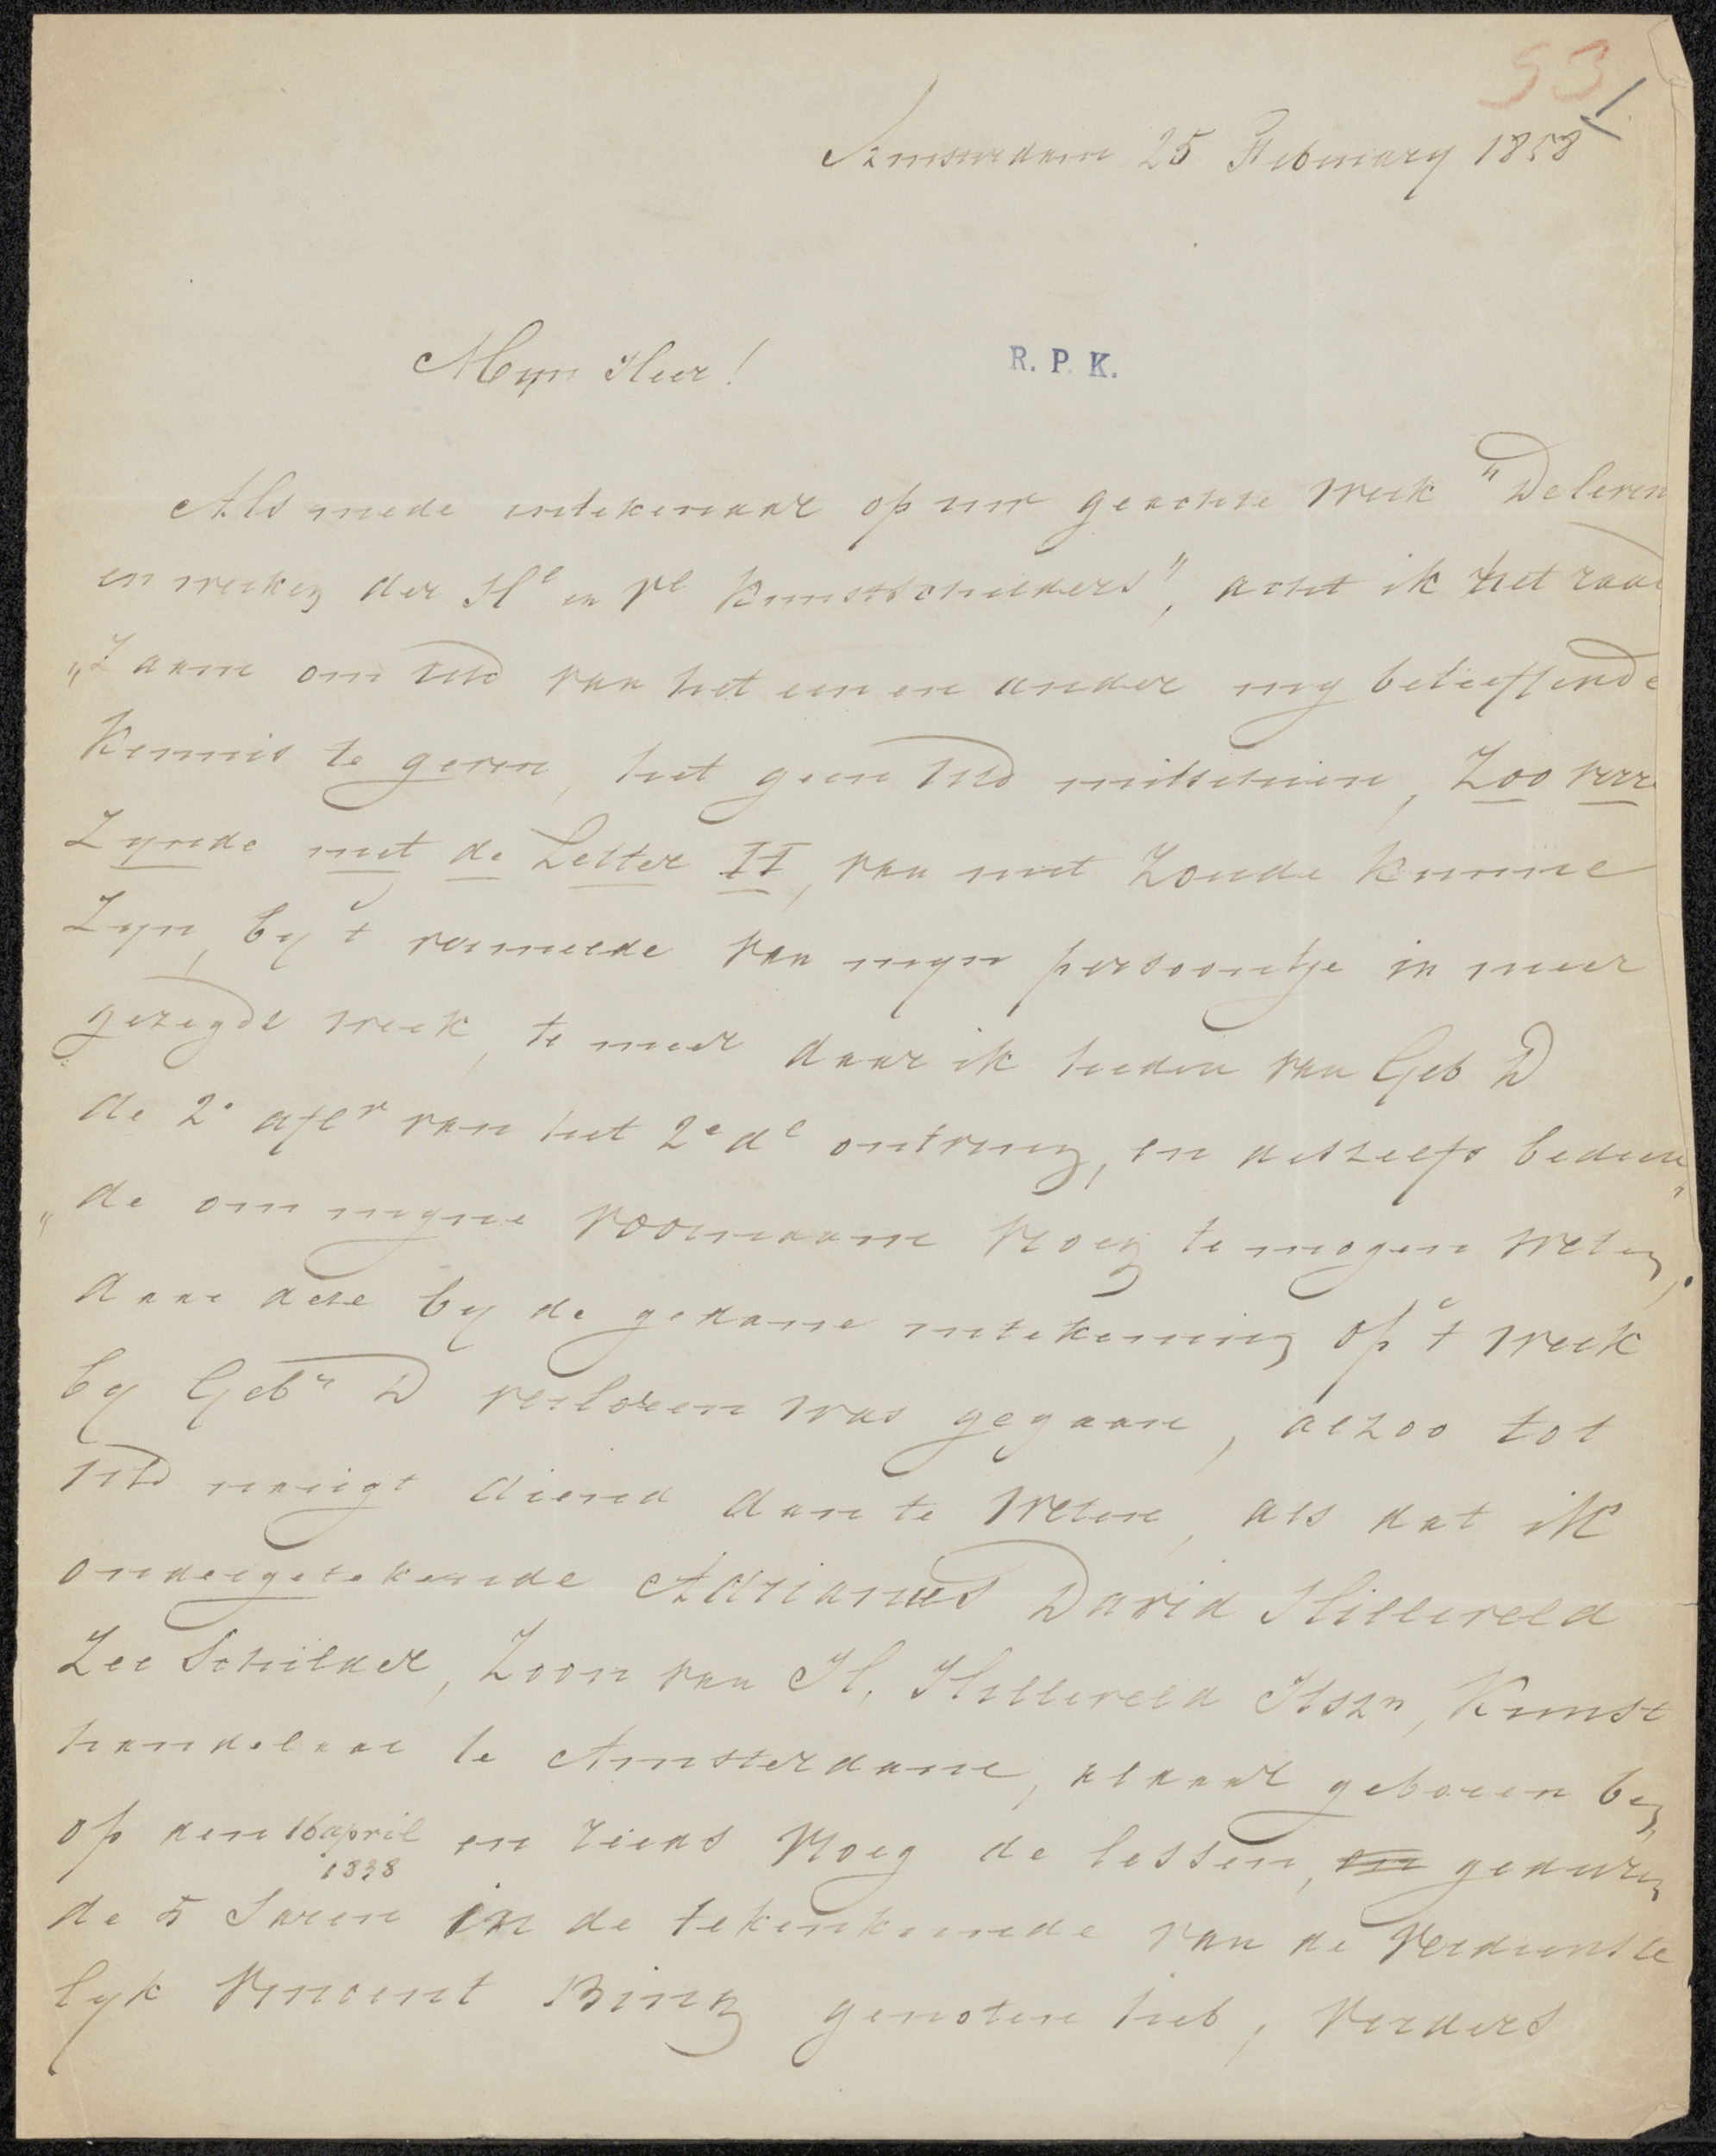 53
1
Amsterdam 25 February 1858
Myn Heer!
R. P. K.
Als mede intekenaar op uw geachte werk "De levens
en werken der Hl en Vl Kunstschilders", acht ik het raad
"zaam om UEd van het een en ander my betreffende
kennis te geven, het geen UEd mitschien, zoo verre
zynde met de Letter H, van nut zoude kunne
zyn, by 't vermelde van myn persoontje in meer
gezegde werk, te meer daar ik heden van Geb D
de 2e aflr van het 2e dl ontving, en deszelfs bedien"
"de om myne voornaam vroeg te mogen weten,
daar deze by de gedane intekening op 't werk
by Gebr D verloren was gegaan, alzoo tot
UEd narigt diend dan te weten, als dat ik
ondergetekende Adrianus David Hilleveld
Zee Schilder, Zoon van H. Hilleveld Hszn, Kunst
handelaar te Amsterdam, aldaar geboren ben
op den 16 april
1838
en reeds vroeg de lessen, en geduren
de 5 Jaren in de tekenkunde van de verdienste
lyk Vincent Bing genoten heb, verders